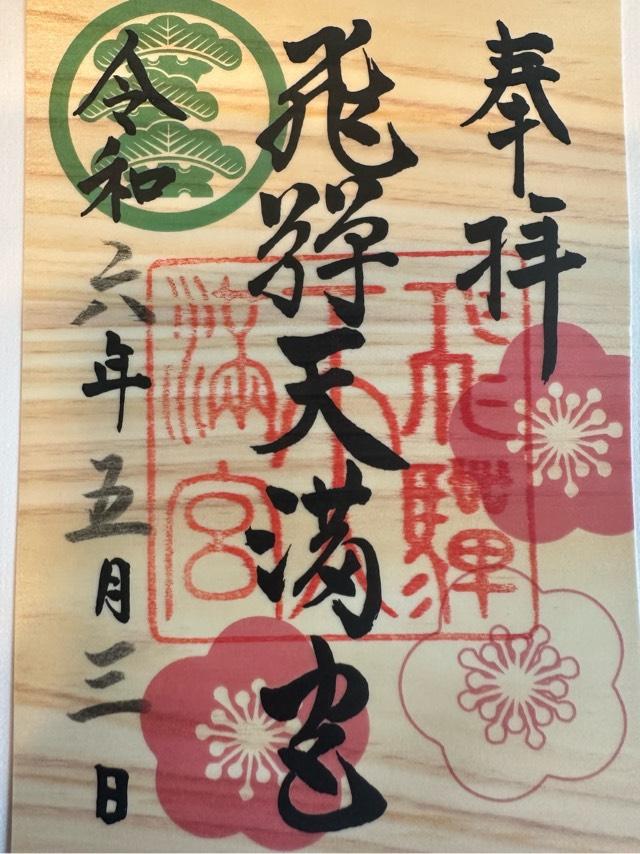 奉拝
飛騨天満宮
飛騨天満宮
令和六年五月三日